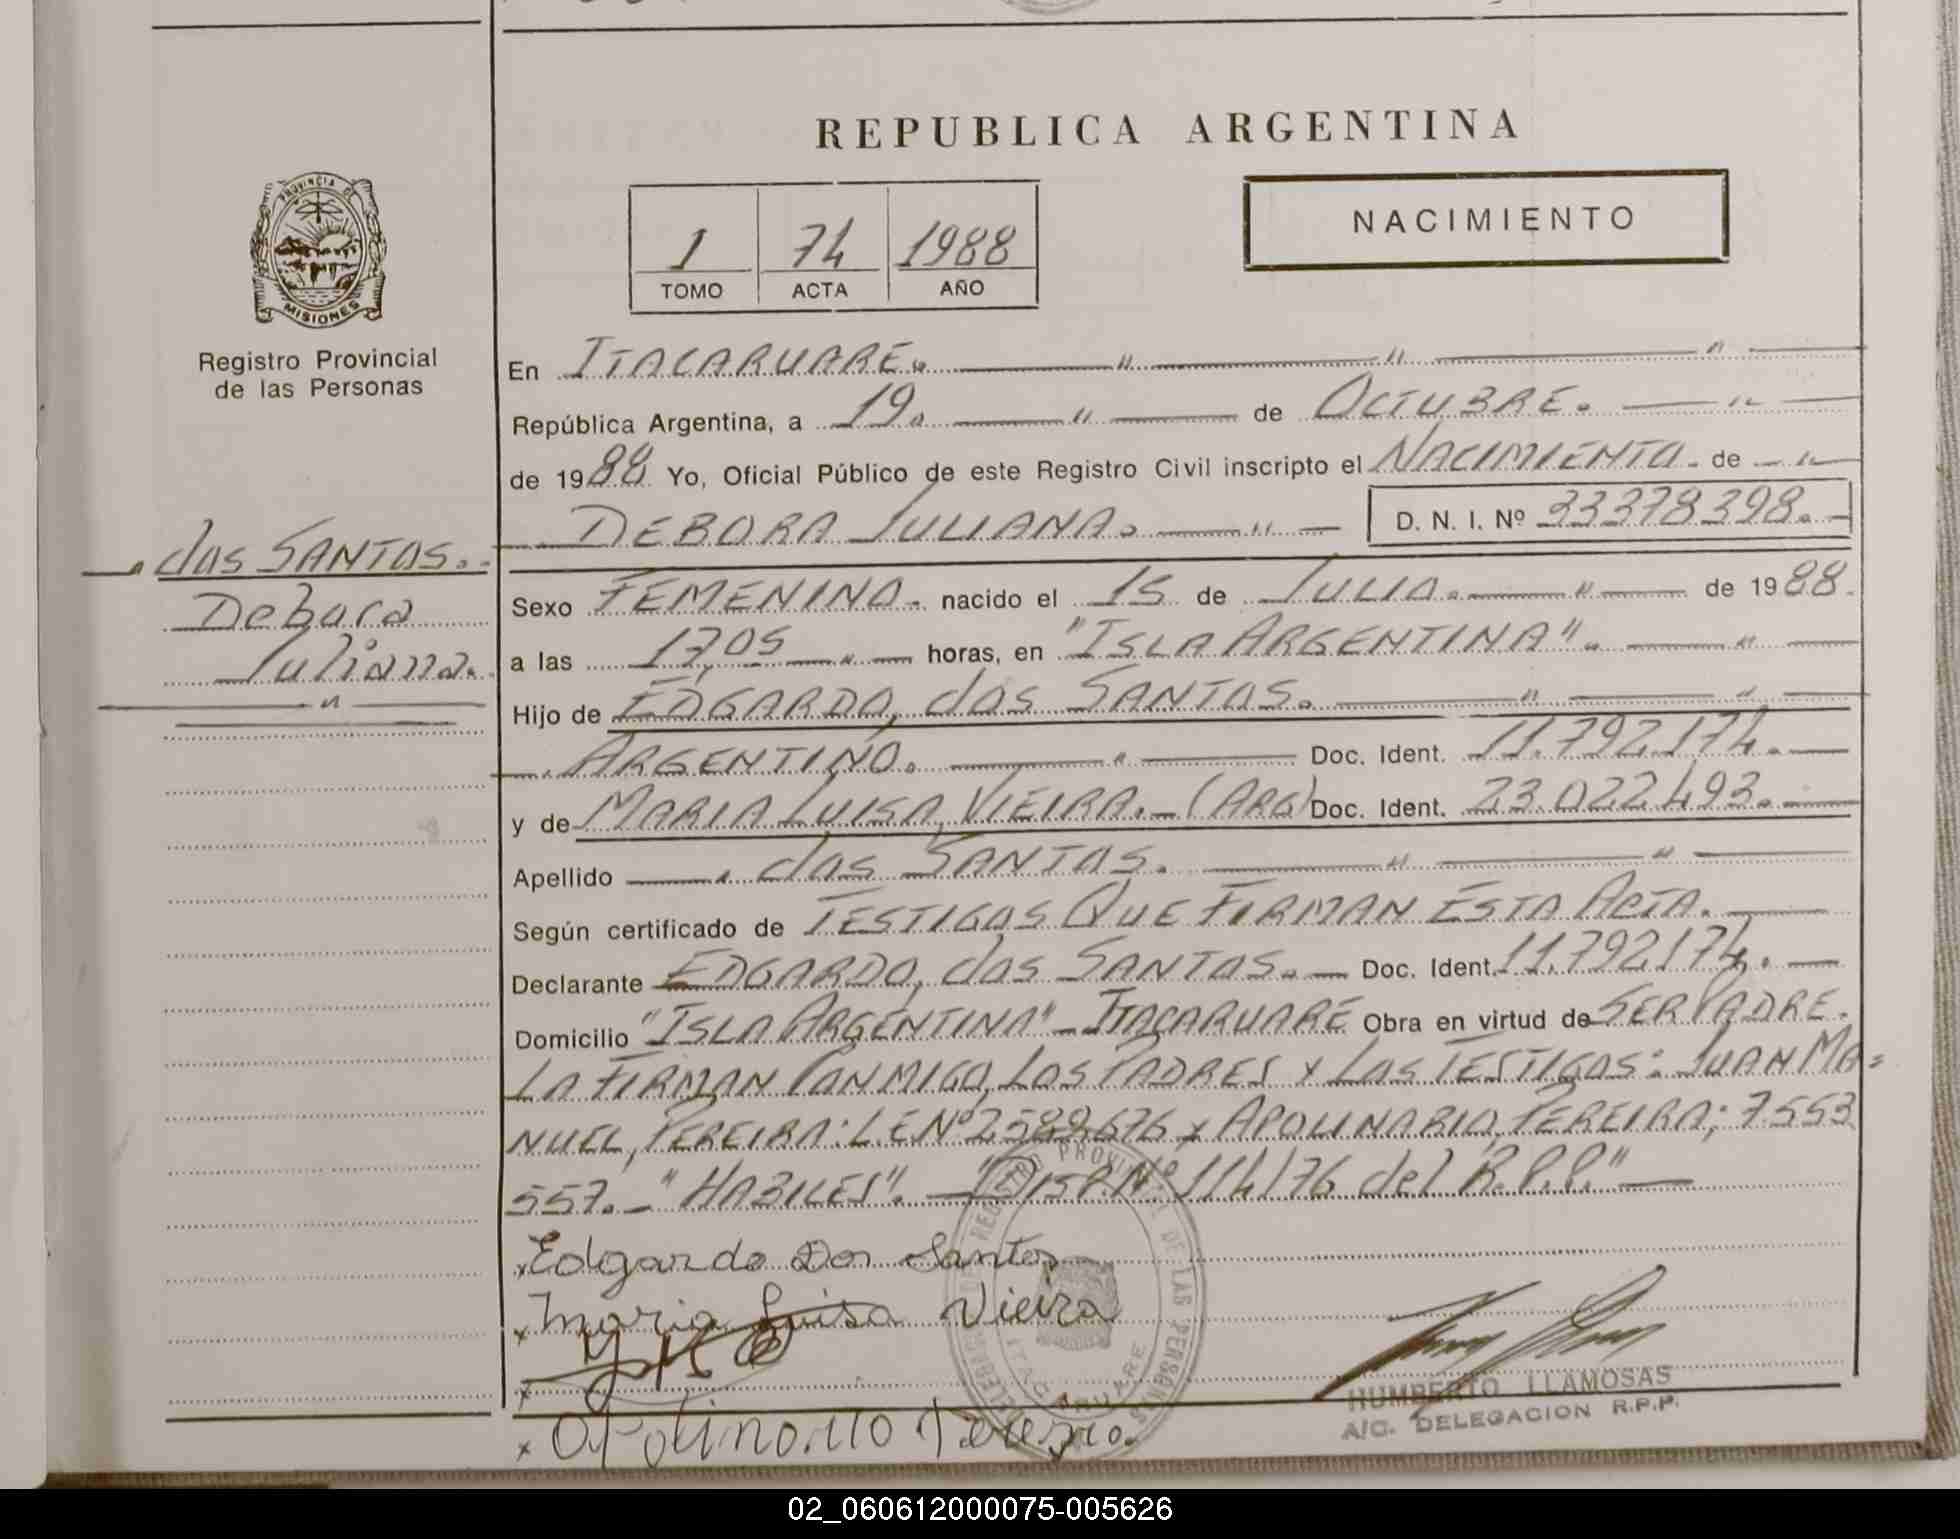 REPUBLICA ARGENTINA
PROVINCIA DE
MISIONES
Registro Provincial
de las Personas
1 74 1988
TOMO ACTA AÑO
NACIMIENTO
dos SANTOS.
Debora
Juliana.
En ITACARUARE. — " — " — " —
República Argentina, a 19. — " — de OCTUBRE. — " —
de 1988 Yo, Oficial Público de este Registro Civil inscripto el NACIMIENTO. de — " —
DEBORA JULIANA. — " — D. N. I. Nº 33378398. —
Sexo FEMENINO. nacido el 15 de JULIO. — " — de 1988.
a las 17,05 — " — horas, en "ISLA ARGENTINA". — " —
Hijo de EDGARDO, dos SANTOS. — " — " —
ARGENTINO. — " — Doc. Ident. 11.792.174. —
y de MARIA LUISA, VIEIRA. — (ARG) Doc. Ident. 23.022.493. —
Apellido — . dos SANTOS. — " — " —
Según certificado de TESTIGOS QUE FIRMAN ESTA ACTA. —
Declarante EDGARDO, dos SANTOS. — Doc. Ident. 11.792.174. —
Domicilio "ISLA ARGENTINA" - ITACARUARE Obra en virtud de SER PADRE.
LA FIRMAN CONMIGO, LOS PADRES Y LOS TESTIGOS: JUAN MA=
NUEL, PEREIRA: L.E Nº 2.588.676 y APOLINARIO, PEREIRA; 7.553
557. - "HABILES". — "DISP. Nº 114/76 del R.P.P." —
x Edgardo Dos Santos
x Maria Luisa Vieira
x
x Apolinario Pereira.
REGISTRO PROVINCIAL DE LAS PERSONAS
ITACARUARE
HUMBERTO LLAMOSAS
A/C. DELEGACION R.P.P.
02_060612000075-005626